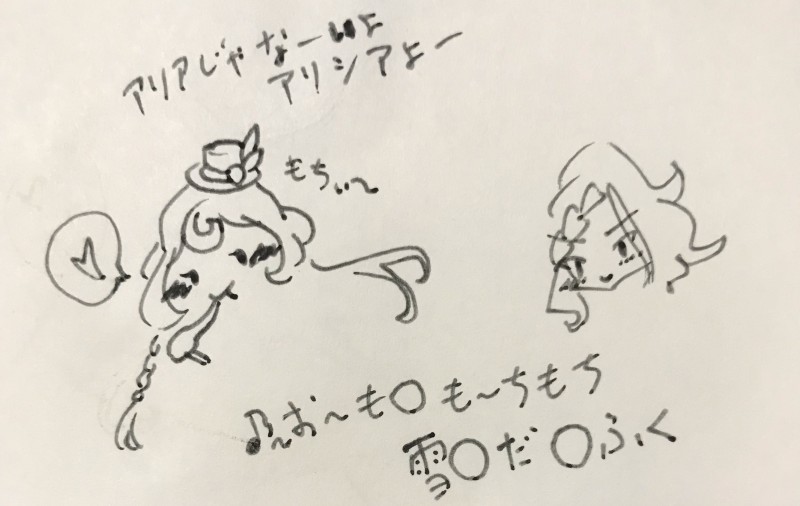 アリアじゃなーいよ
アリシアよー
もちぃ〜
♪〜お〜も〇 も〜ちもち
雪〇だ〇ふく